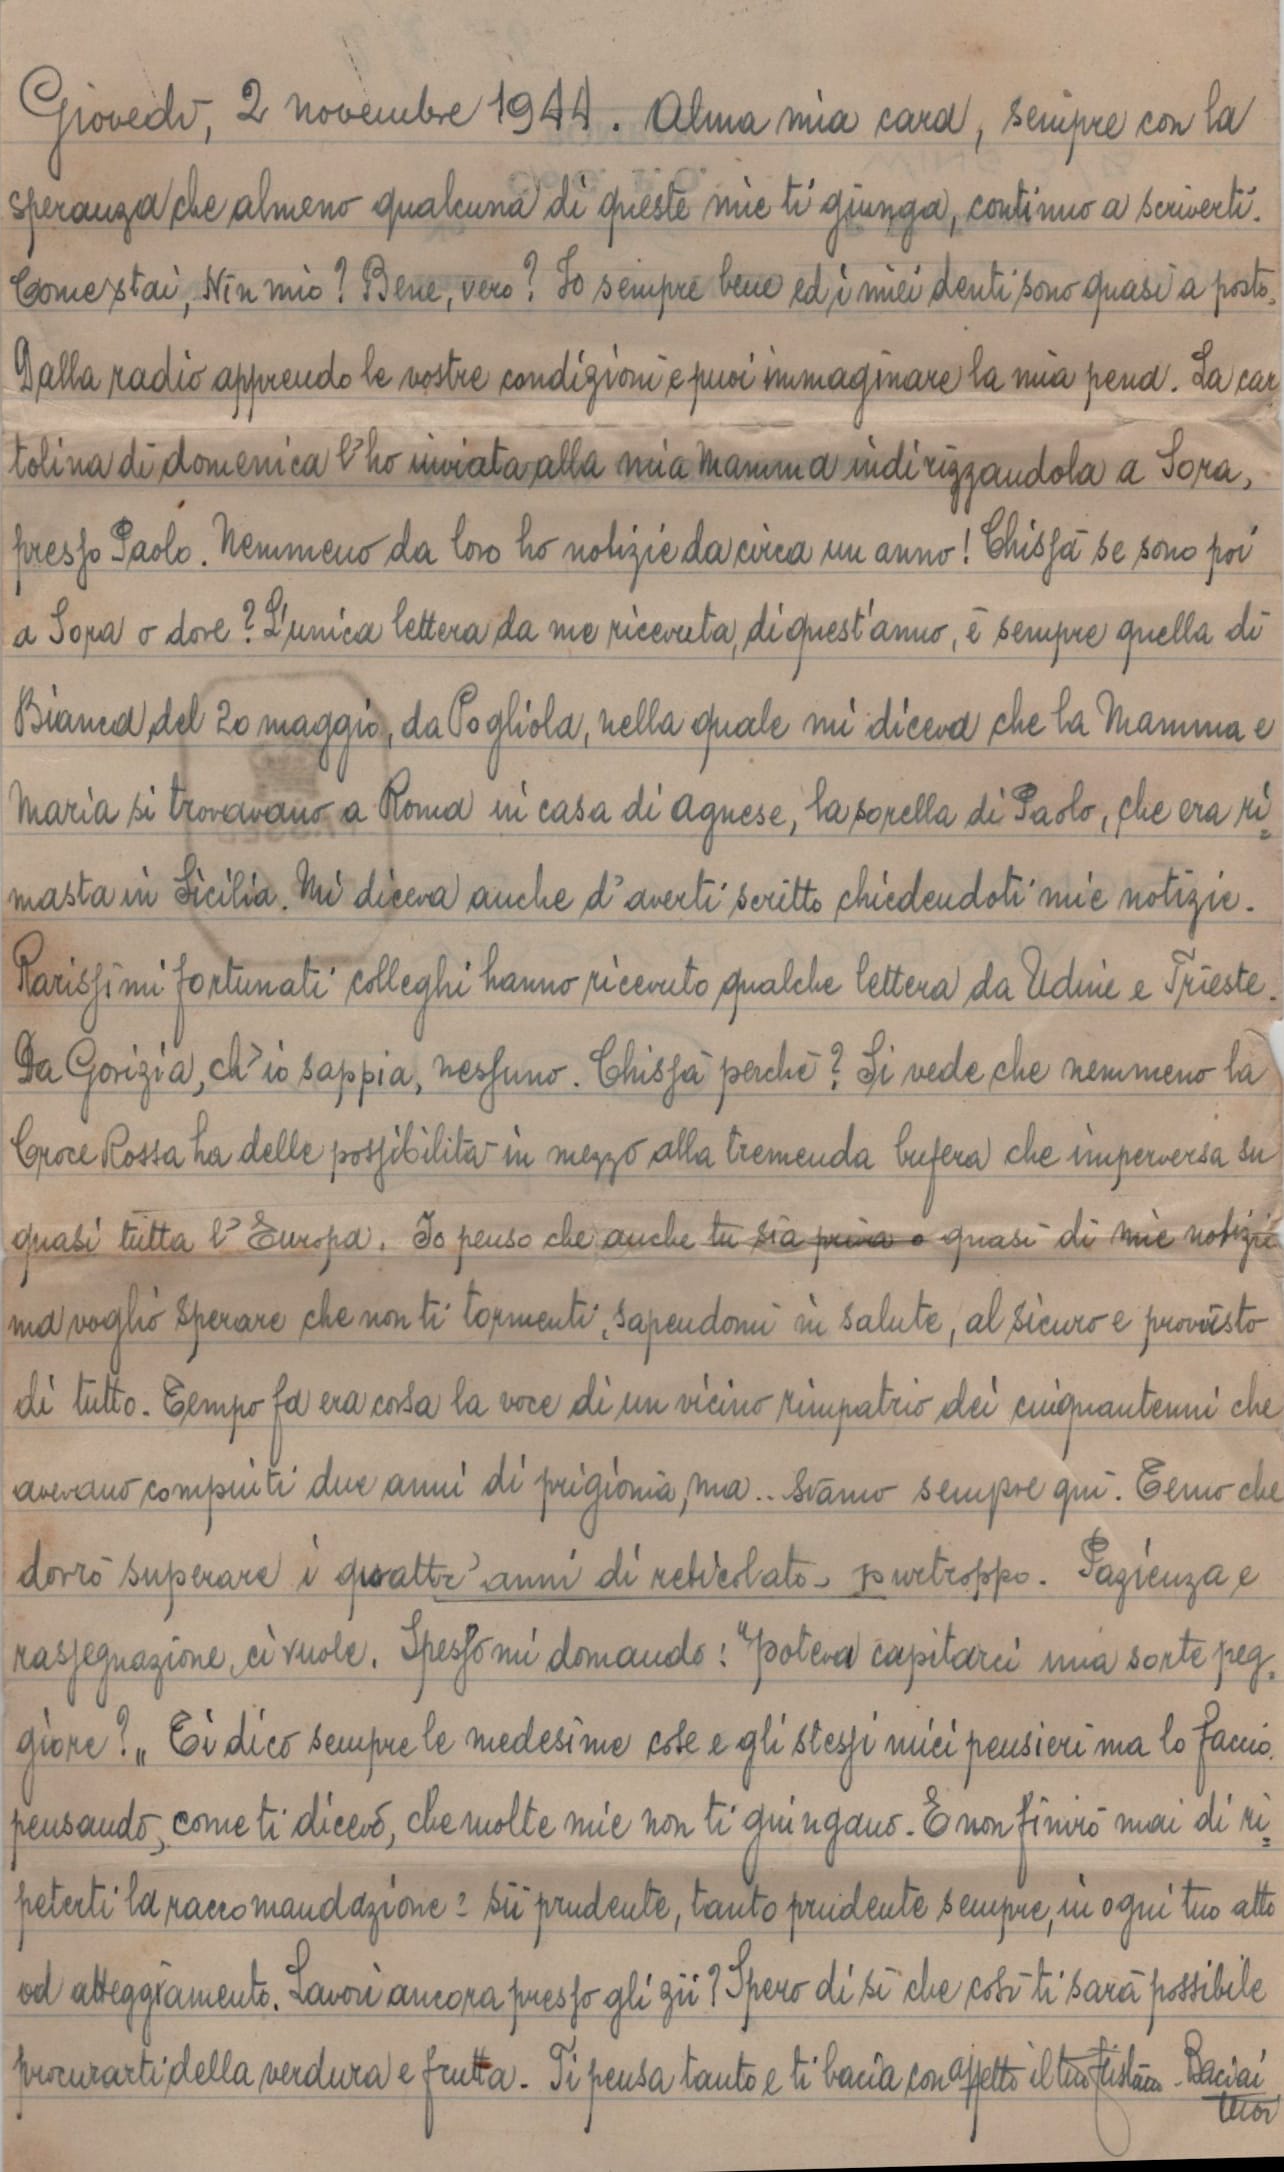 Giovedì, 2 novembre 1944. Alma mia cara, sempre con la
speranza che almeno qualcuna di queste mie ti giunga, continuo a scriverti.
Come stai, Nin mio? Bene, vero? Io sempre bene ed i miei denti sono quasi a posto.
Dalla radio apprendo le vostre condizioni e puoi immaginare la mia pena. La car
tolina di domenica l'ho inviata alla mia Mamma indirizzandola a Sora,
presso Paolo. Nemmeno da loro ho notizie da circa un anno! Chissà se sono poi
a Sora o dove? L'unica lettera da me ricevuta, di quest'anno, è sempre quella di
Bianca del 20 maggio, da Pogliola, nella quale mi diceva che la Mamma e
Maria si trovavano a Roma in casa di Agnese, la sorella di Paolo, che era ri=
masta in Sicilia. Mi diceva anche d'averti scritto chiedendoti mie notizie.
Rarissimi fortunati colleghi hanno ricevuto qualche lettera da Udine e Trieste.
Da Gorizia, ch'io sappia, nessuno. Chissà perché? Si vede che nemmeno la
Croce Rossa ha delle possibilità in mezzo alla tremenda bufera che imperversa su
quasi tutta l'Europa. Io penso che anche tu sia priva o quasi di mie notizie
ma voglio sperare che non ti tormenti, sapendomi in salute, al sicuro e provvisto
di tutto. Tempo fa era corsa la voce di un vicino rimpatrio dei cinquantenni che
avevano compiuti due anni di prigionia, ma.. siamo sempre qui. Temo che
dovrò superare i quattr'anni di reticolato, purtroppo. Pazienza e
rassegnazione, ci vuole. Spesso mi domando: "poteva capitarci una sorte peg=
giore?„ Ti dico sempre le medesime cose e gli stessi miei pensieri ma lo faccio
pensando, come ti dicevo, che molte mie non ti giungano. E non finirò mai di ri=
peterti la raccomandazione: sii prudente, tanto prudente sempre, in ogni tuo atto
od atteggiamento. Lavori ancora presso gli zii? Spero di sì che così ti sarà possibile
procurarti della verdura e frutta. Ti pensa tanto e ti bacia con affetto il tuo Baci ai
tuoi